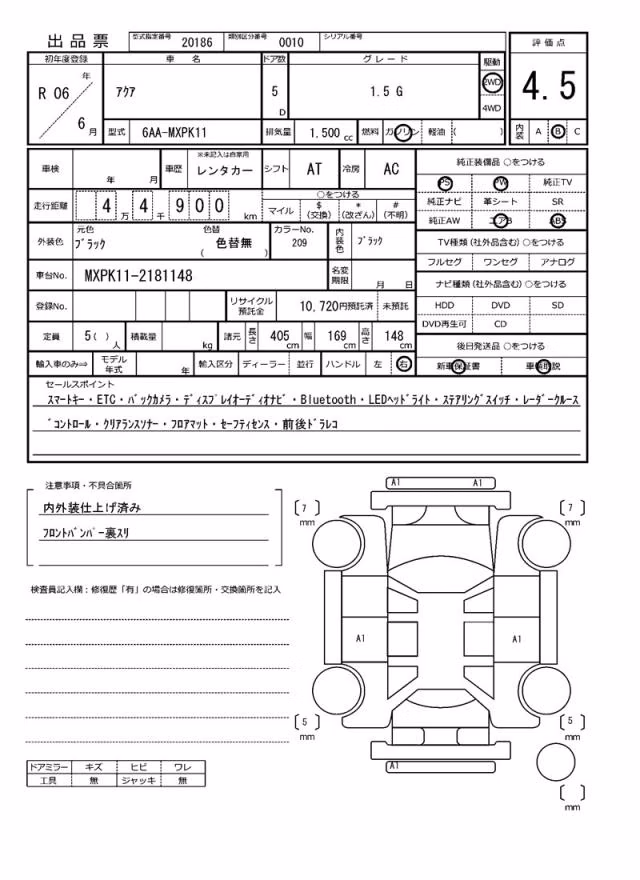 出品票 型式指定番号 20186 類別区分番号 0010 シリアル番号
評価点
4.5
内装 A B C
初年度登録 車名 ドア数 グレード 駆動
R 06 年 6 月 ｱｸｱ 5 D 1.5 G 2WD 4WD
型式 6AA-MXPK11 排気量 1.500 cc 燃料 ガソリン 軽油 ( )
車検 年 月 車歴 ※未記入は自家用 レンタカー シフト AT 冷房 AC
走行距離 4 万 4 千 9 0 0 km ○をつける
マイル $ (交換) * (改ざん) # (不明)
外装色 元色 ﾌﾞﾗｯｸ 色替 ( 色替無 ) カラーNo. 209 内装色 ﾌﾞﾗｯｸ
車台No. MXPK11-2181148 名変期限 月 日
登録No. リサイクル預託金 10,720円預託済 未預託
定員 5 ( ) 人 積載量 kg 諸元 長さ 405 cm 幅 169 cm 高さ 148 cm
輸入車のみ⇨ モデル年式 年 輸入区分 ディーラー 並行 ハンドル 左 右
純正装備品 ○をつける
PS PW 純正TV
純正ナビ 革シート SR
純正AW エアB ABS
TV種類 (社外品含む) ○をつける
フルセグ ワンセグ アナログ
ナビ種類 (社外品含む) ○をつける
HDD DVD SD
DVD再生可 CD
後日発送品 ○をつける
新車保証書 車輌取説
セールスポイント
ｽﾏｰﾄｷｰ・ETC・ﾊﾞｯｸｶﾒﾗ・ﾃﾞｨｽﾌﾟﾚｲｵｰﾃﾞｨｵﾅﾋﾞ・Bluetooth・LEDﾍｯﾄﾞﾗｲﾄ・ｽﾃｱﾘﾝｸﾞｽｲｯﾁ・ﾚｰﾀﾞｰｸﾙｰｽ
ﾞｺﾝﾄﾛｰﾙ・ｸﾘｱﾗﾝｽｿﾅｰ・ﾌﾛｱﾏｯﾄ・ｾｰﾌﾃｨｾﾝｽ・前後ﾄﾞﾗﾚｺ
注意事項・不具合箇所
内外装仕上げ済み
ﾌﾛﾝﾄﾊﾞﾝﾊﾟｰ裏ｽﾘ
検査員記入欄：修復歴「有」の場合は修復箇所・交換箇所を記入
ドアミラー キズ ヒビ ワレ
工具 無 ジャッキ 無
A1 A1
7 mm
7 mm
A1
A1
5 mm
5 mm
A1
mm